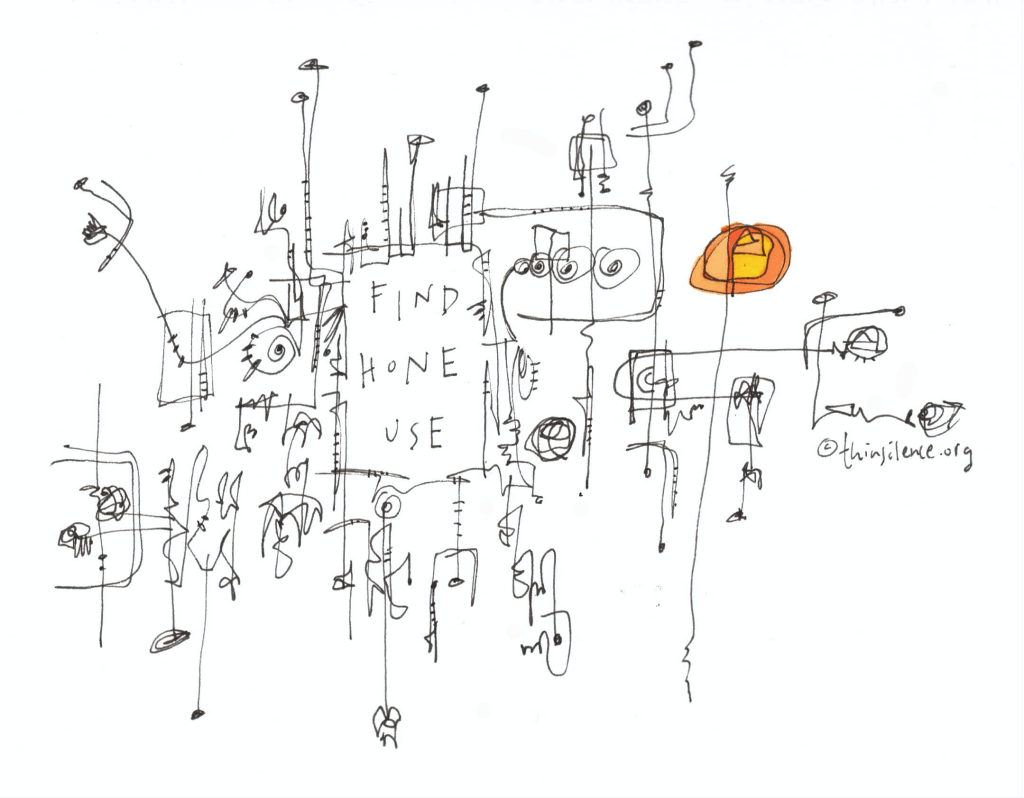 FIND
HONE
USE
©thinsilence.org